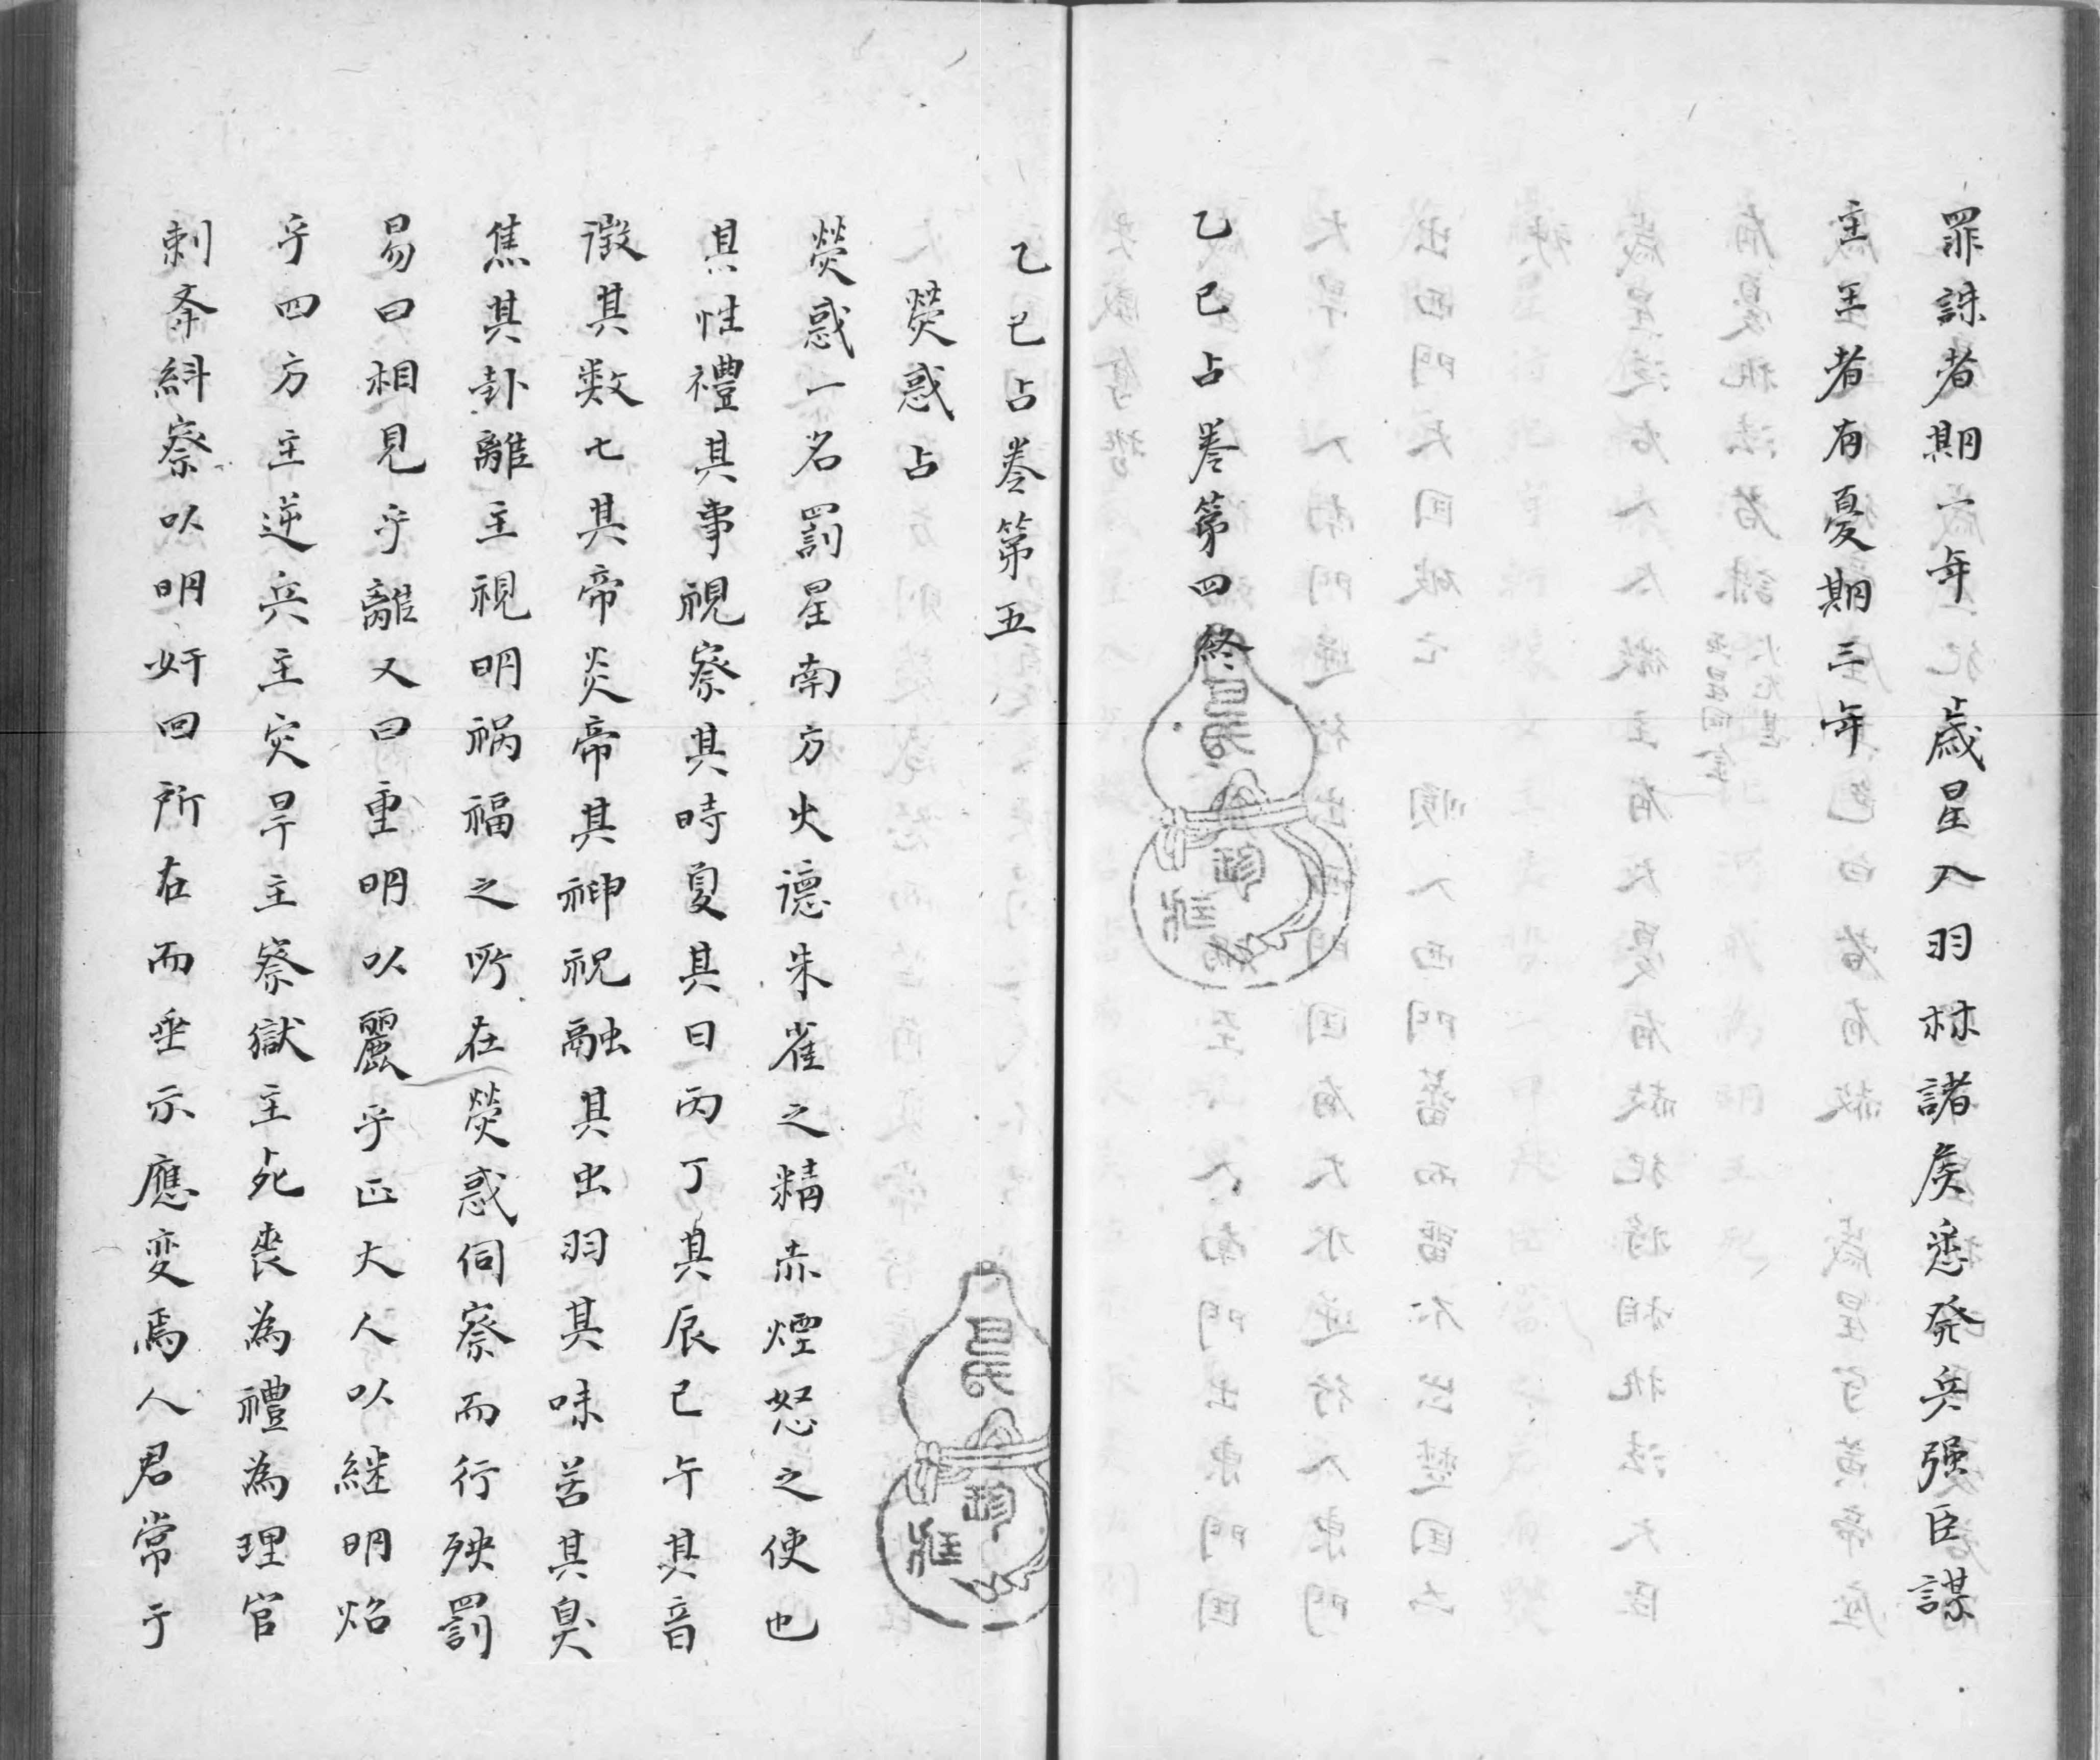 罪誅者期一年　歳星入羽林諸矦悉発兵强臣謀
主王者有憂期三年
乙巳占巻第四終
乙巳占巻第五
熒惑占
熒惑一名罰星南方火德朱雀之精赤煙怒之使也
其性禮其事視察其時夏其日丙丁其辰巳午其音
徴其数七其帝炎帝其神祝融其虫羽其味苦其臭
焦其卦離主視明禍福之所在熒惑伺察而行殃罰
易曰相見乎離又曰重明以麗乎正大人以継明炤
乎四方主逆兵主灾旱主察獄主死喪為禮為理官
刺斉糾察以明奸回所在而垂示應変焉人君常于